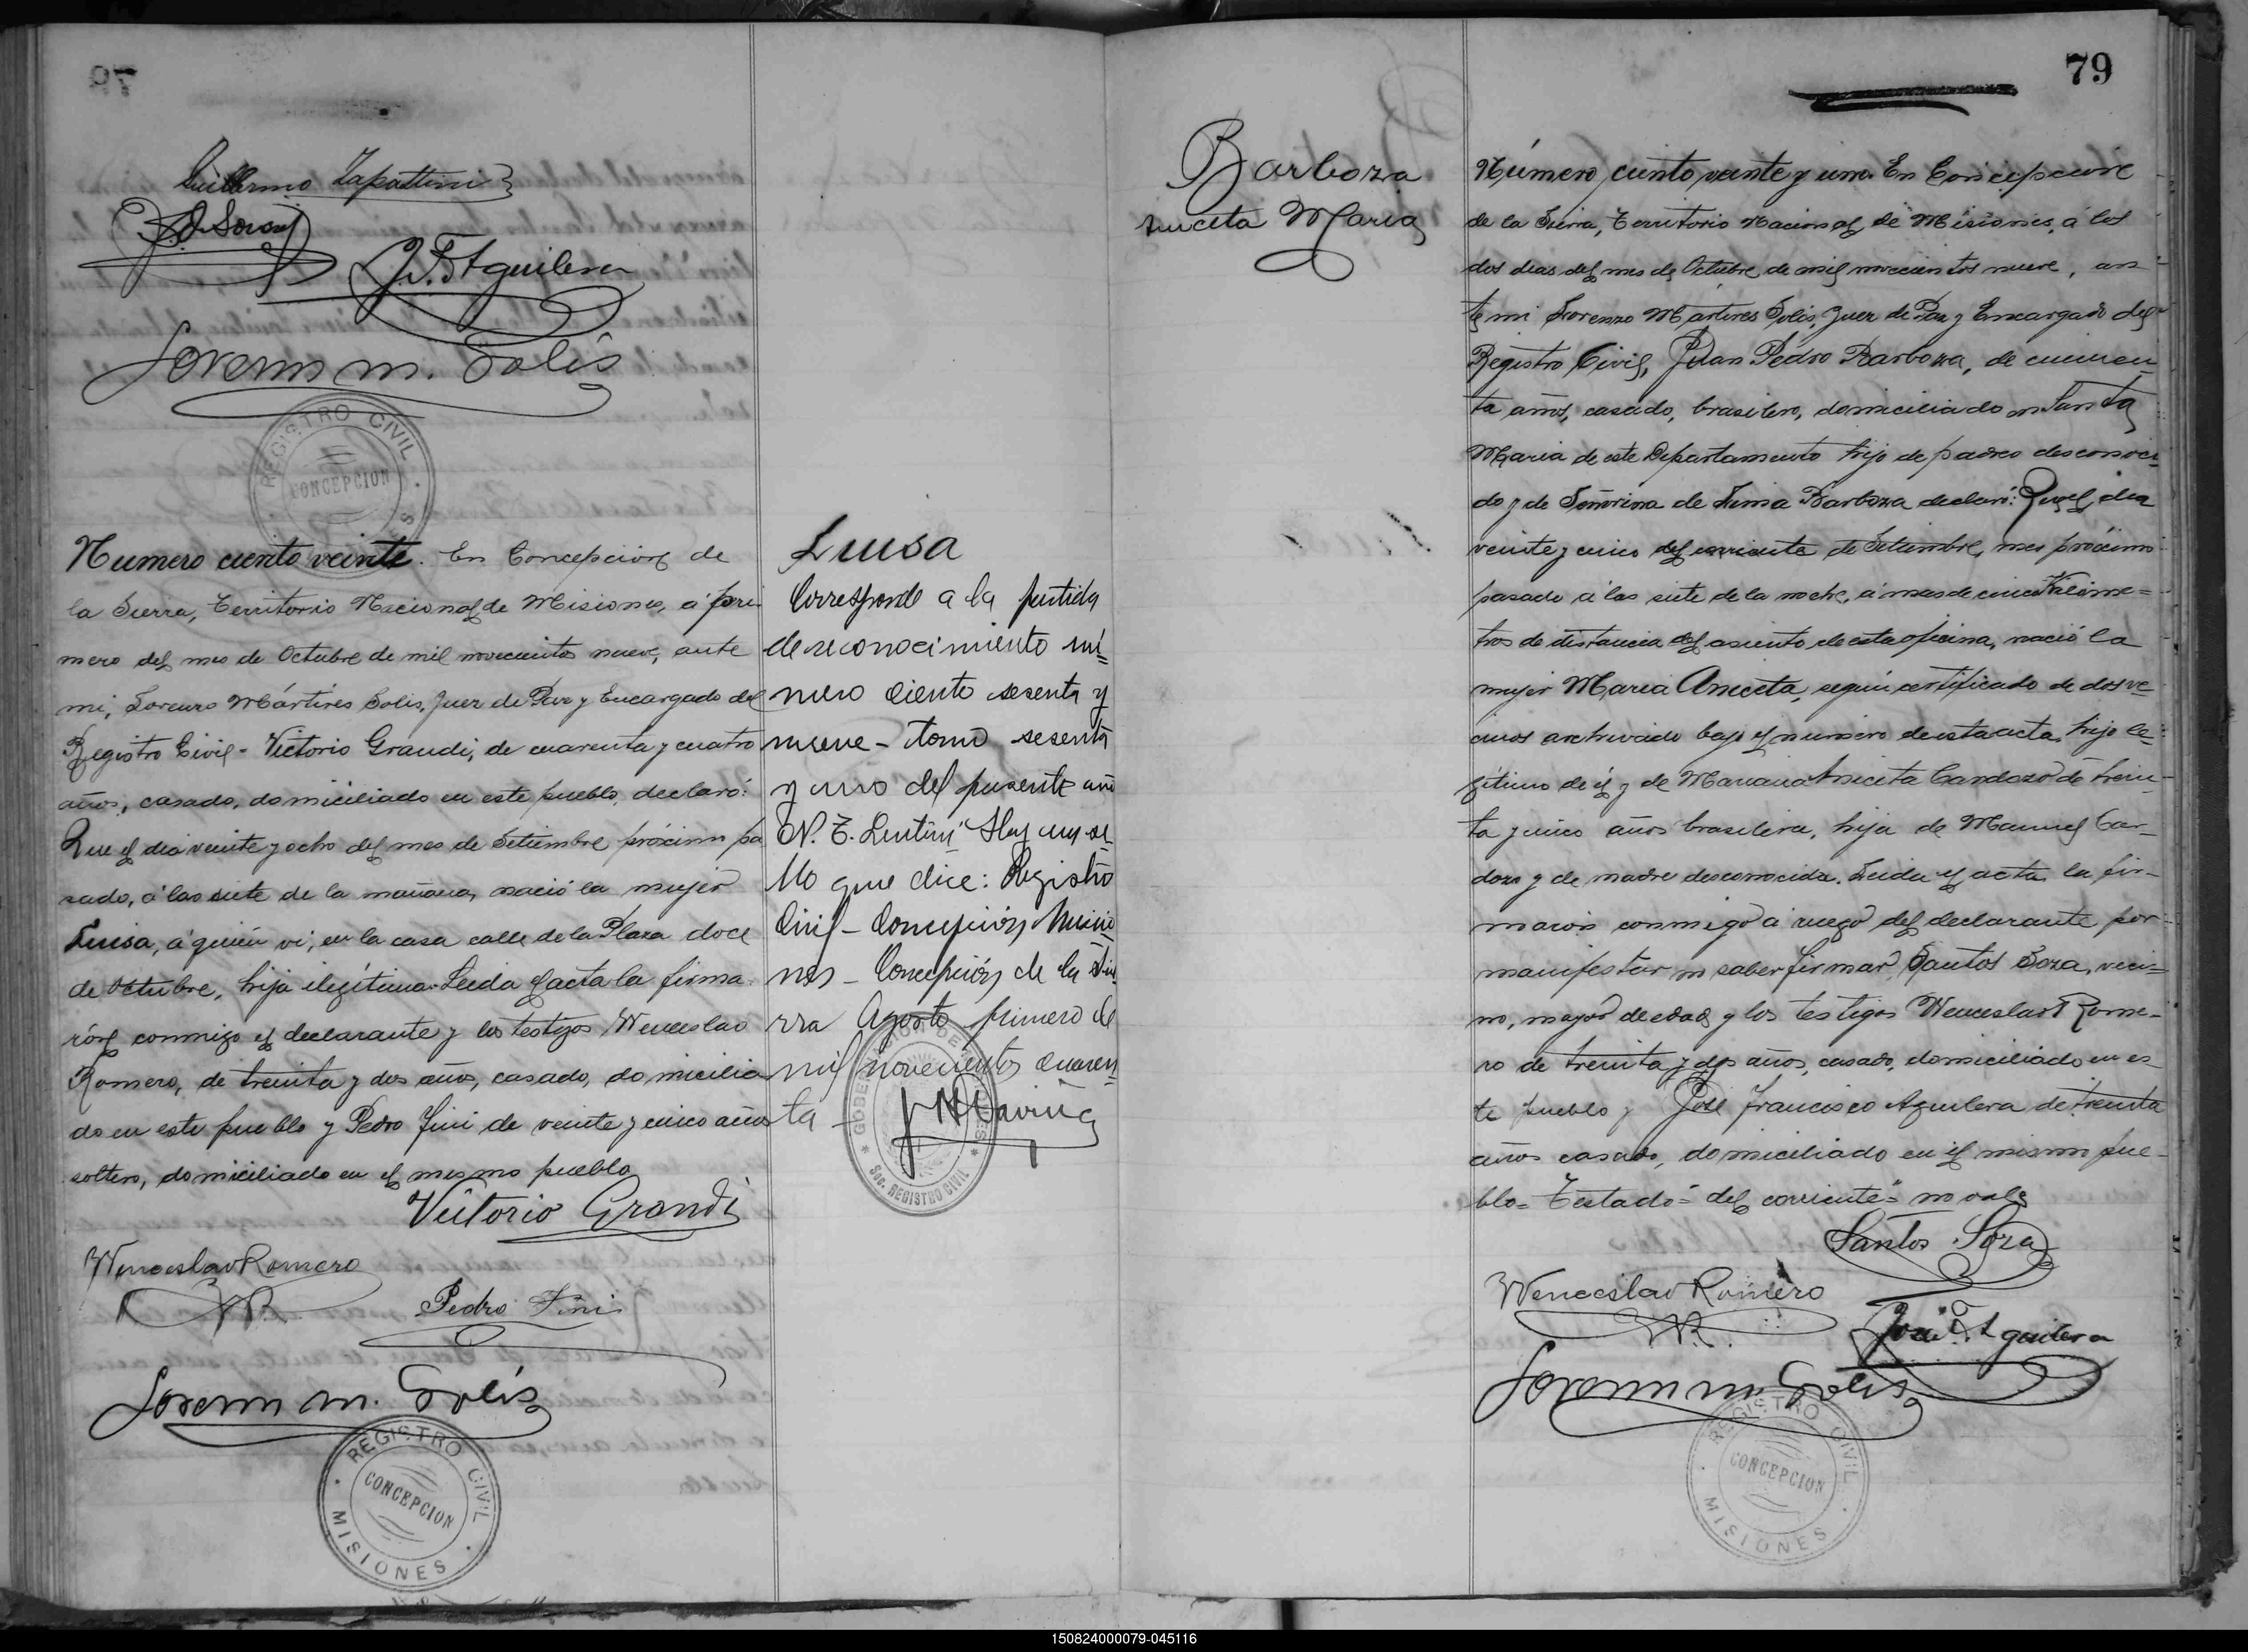 Guillermo Zapattini
J. F. Aguilera
Lorenzo M. Solís
REGISTRO CIVIL
CONCEPCION
Numero ciento veinte. En Concepción de
la Sierra, Territorio Nacional de Misiones, á pri
mero del mes de Octubre de mil novecientos nueve, ante
mi, Lorenzo Mártires Solis, Juez de Paz y Encargado del
Registro Civil - Victorio Grandi, de cuarenta y cuatro
años, casado, domiciliado en este pueblo, declaró:
Que el dia veinte y ocho del mes de Setiembre próximo pa
sado, á las siete de la mañana, nació la mujer
Luisa, á quien vi, en la casa calle de la Plaza doce
de Octubre, hija ilegítima. Leida el acta la firma
rón conmigo el declarante y los testigos Wenceslao
Romero, de treinta y dos años, casado, domicilia
do en este pueblo y Pedro Fini de veinte y cinco años
soltero, domiciliado en el mesmo pueblo
Vittorio Grandi
Wenceslao Romero
WR.
Pedro Fini
Lorenzo M. Solís
REGISTRO CIVIL
CONCEPCION
MISIONES
Luisa
Corresponde a la partida
de reconocimiento nú=
mero ciento sesenta y
nueve - tomo sesenta
y uno del presente año
N. T. Lentini Hay un se
llo que dice: Registro
Civil - Concepción Misio
nes - Concepción de la Sie
rra Agosto primero de
mil novecientos cuaren
ta -
GOBERNACION DE MISIONES
SOC. REGISTRO CIVIL
79
Barboza
Aniceta Maria
Número ciento veinte y uno. En Concepcion
de la Sierra, Territorio Nacional de Misiones, á los
dos dias del mes de Octubre de mil novecientos nueve, an
te mi Lorenzo Mártires Solis, Juez de Paz y Encargado del
Registro Civil, Juan Pedro Barboza, de cincuen
ta años, casado, brasilero, domiciliado en Santa
Maria de este Departamento hijo de padres desconoci
do y de Señorina de Lima Barboza declaró: Que el dia
veinte y cinco del corriente de Setiembre, mes próximo
pasado á las siete de la noche, á mas de cinco Kilóme=
tros de distancia del asiento de esta oficina, nació la
mujer Maria Aniceta, según certificado de dos ve
cinos archivado bajo el número de esta acta, hijo le
gítimo de él y de Mariana Aniceta Cardozo de trein-
ta y cinco años brasilera, hija de Manuel Car-
dozo y de madre desconocida. Leida el acta la fir-
maron conmigo á ruego del declarante por
manifestar no saber firmar, Santos Soza, veci=
no, mayor de edad y los testigos Wenceslao Rome-
ro de treinta y dos años, casado, domiciliado en es-
te pueblo y José Francisco Aguilera de treinta
años casado, domiciliado en el mismo pue-
blo= Testado "del corriente" no vale
Santos Soza
Wenceslao Romero
WR.
José F. Aguilera
Lorenzo M. Solís
REGISTRO CIVIL
CONCEPCION
MISIONES
150824000079-045116